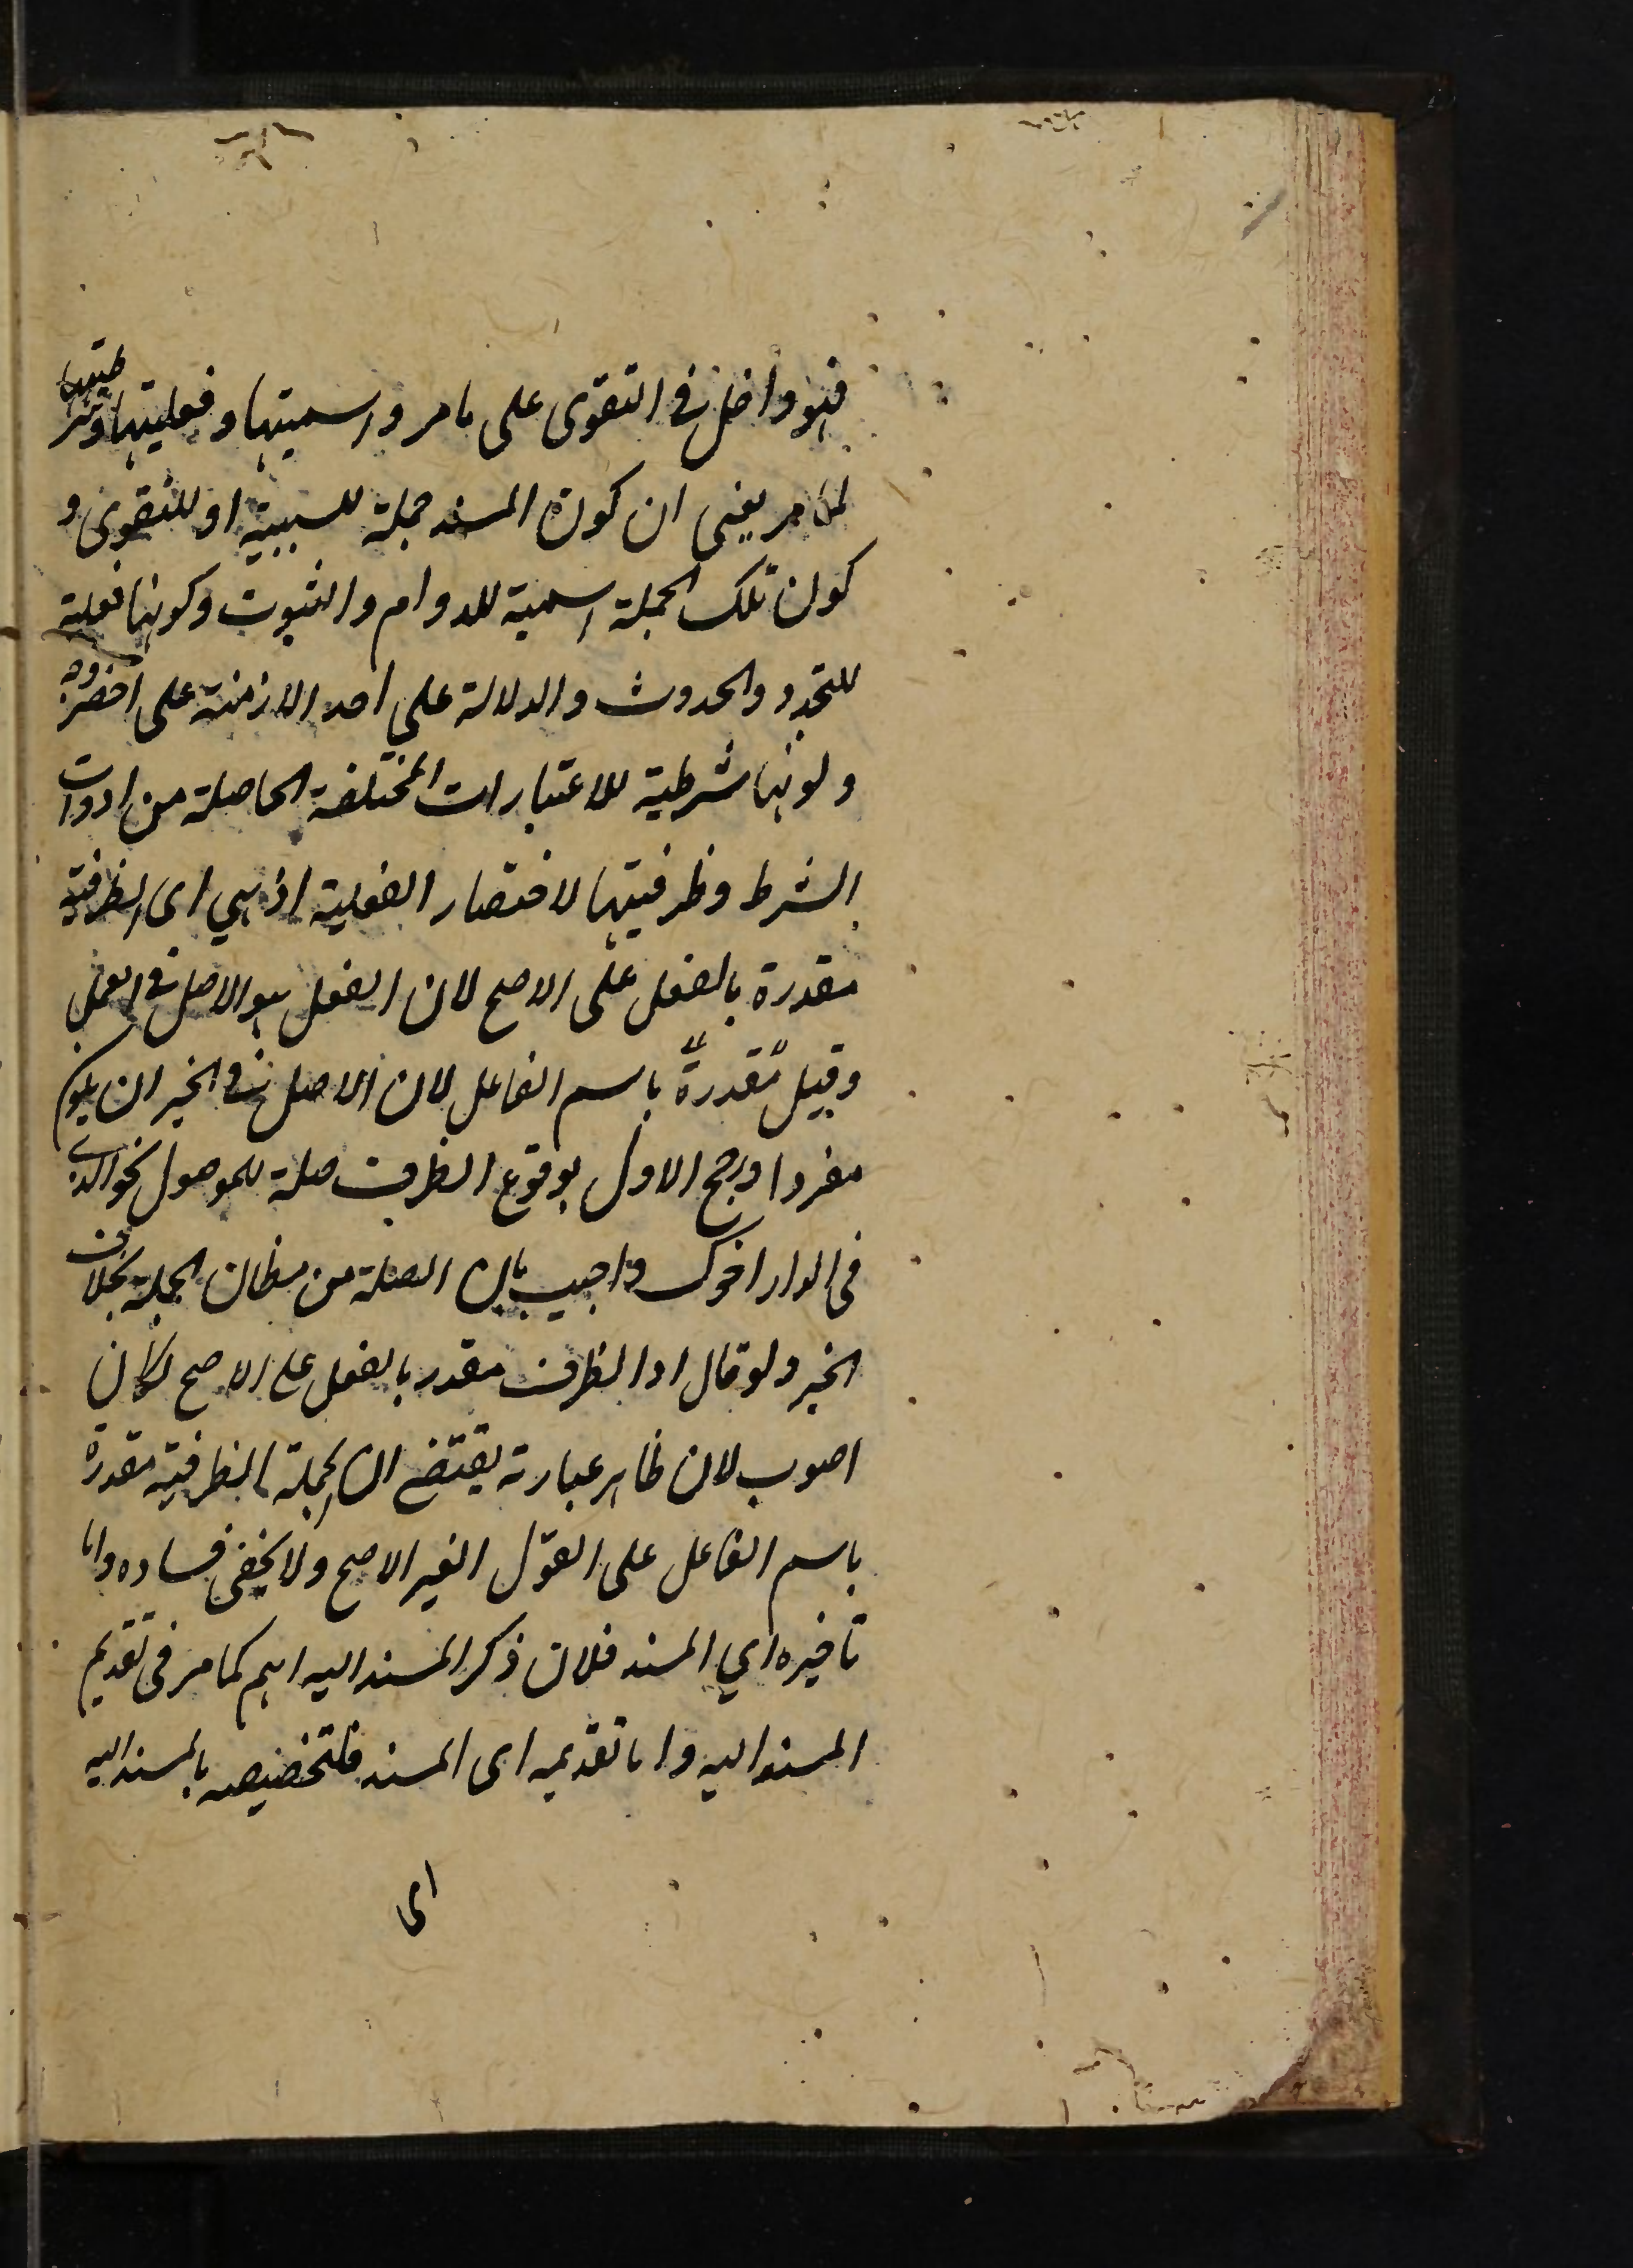 فهو داخل في التقوى على ما مر واسميتها وفعليتها وشرطيتها
لما مر يعنى ان كون المسند جملة للسببية او للتقوى و
كون تلك الجملة اسمية للدوام والثبوت وكونها فعلية
للتجدد والحدوث والدلالة على احد الازمنة على اخصر وجه
وكونها شرطية للاعتبارات المختلفة الحاصلة من ادوات
الشرط وظرفيتها لاختصار الفعلية اذ هي اى الظرفية
مقدرة بالفعل على الاصح لان الفعل هو الاصل في العمل
وقيل مقدرة باسم الفاعل لان الاصل في الخبر ان يكون
مفردا ورجح الاول بوقوع الظرف صلة للموصول نحو الذي
في الدار اخوك واجيب بان الصلة من مظان الجملة بخلاف
الخبر ولو قال اذا الظرف مقدر بالفعل على الاصح لكان
اصوب لان ظاهر عبارته يقتضى ان الجملة الظرفية مقدرة
باسم الفاعل على القول الغير الاصح ولا يخفى فساده واما
تاخيره اي المسند فلان ذكر المسند اليه اهم كما مر في تقديم
المسند اليه واما تقديمه اى المسند فلتخصيصه بالمسند اليه
اى